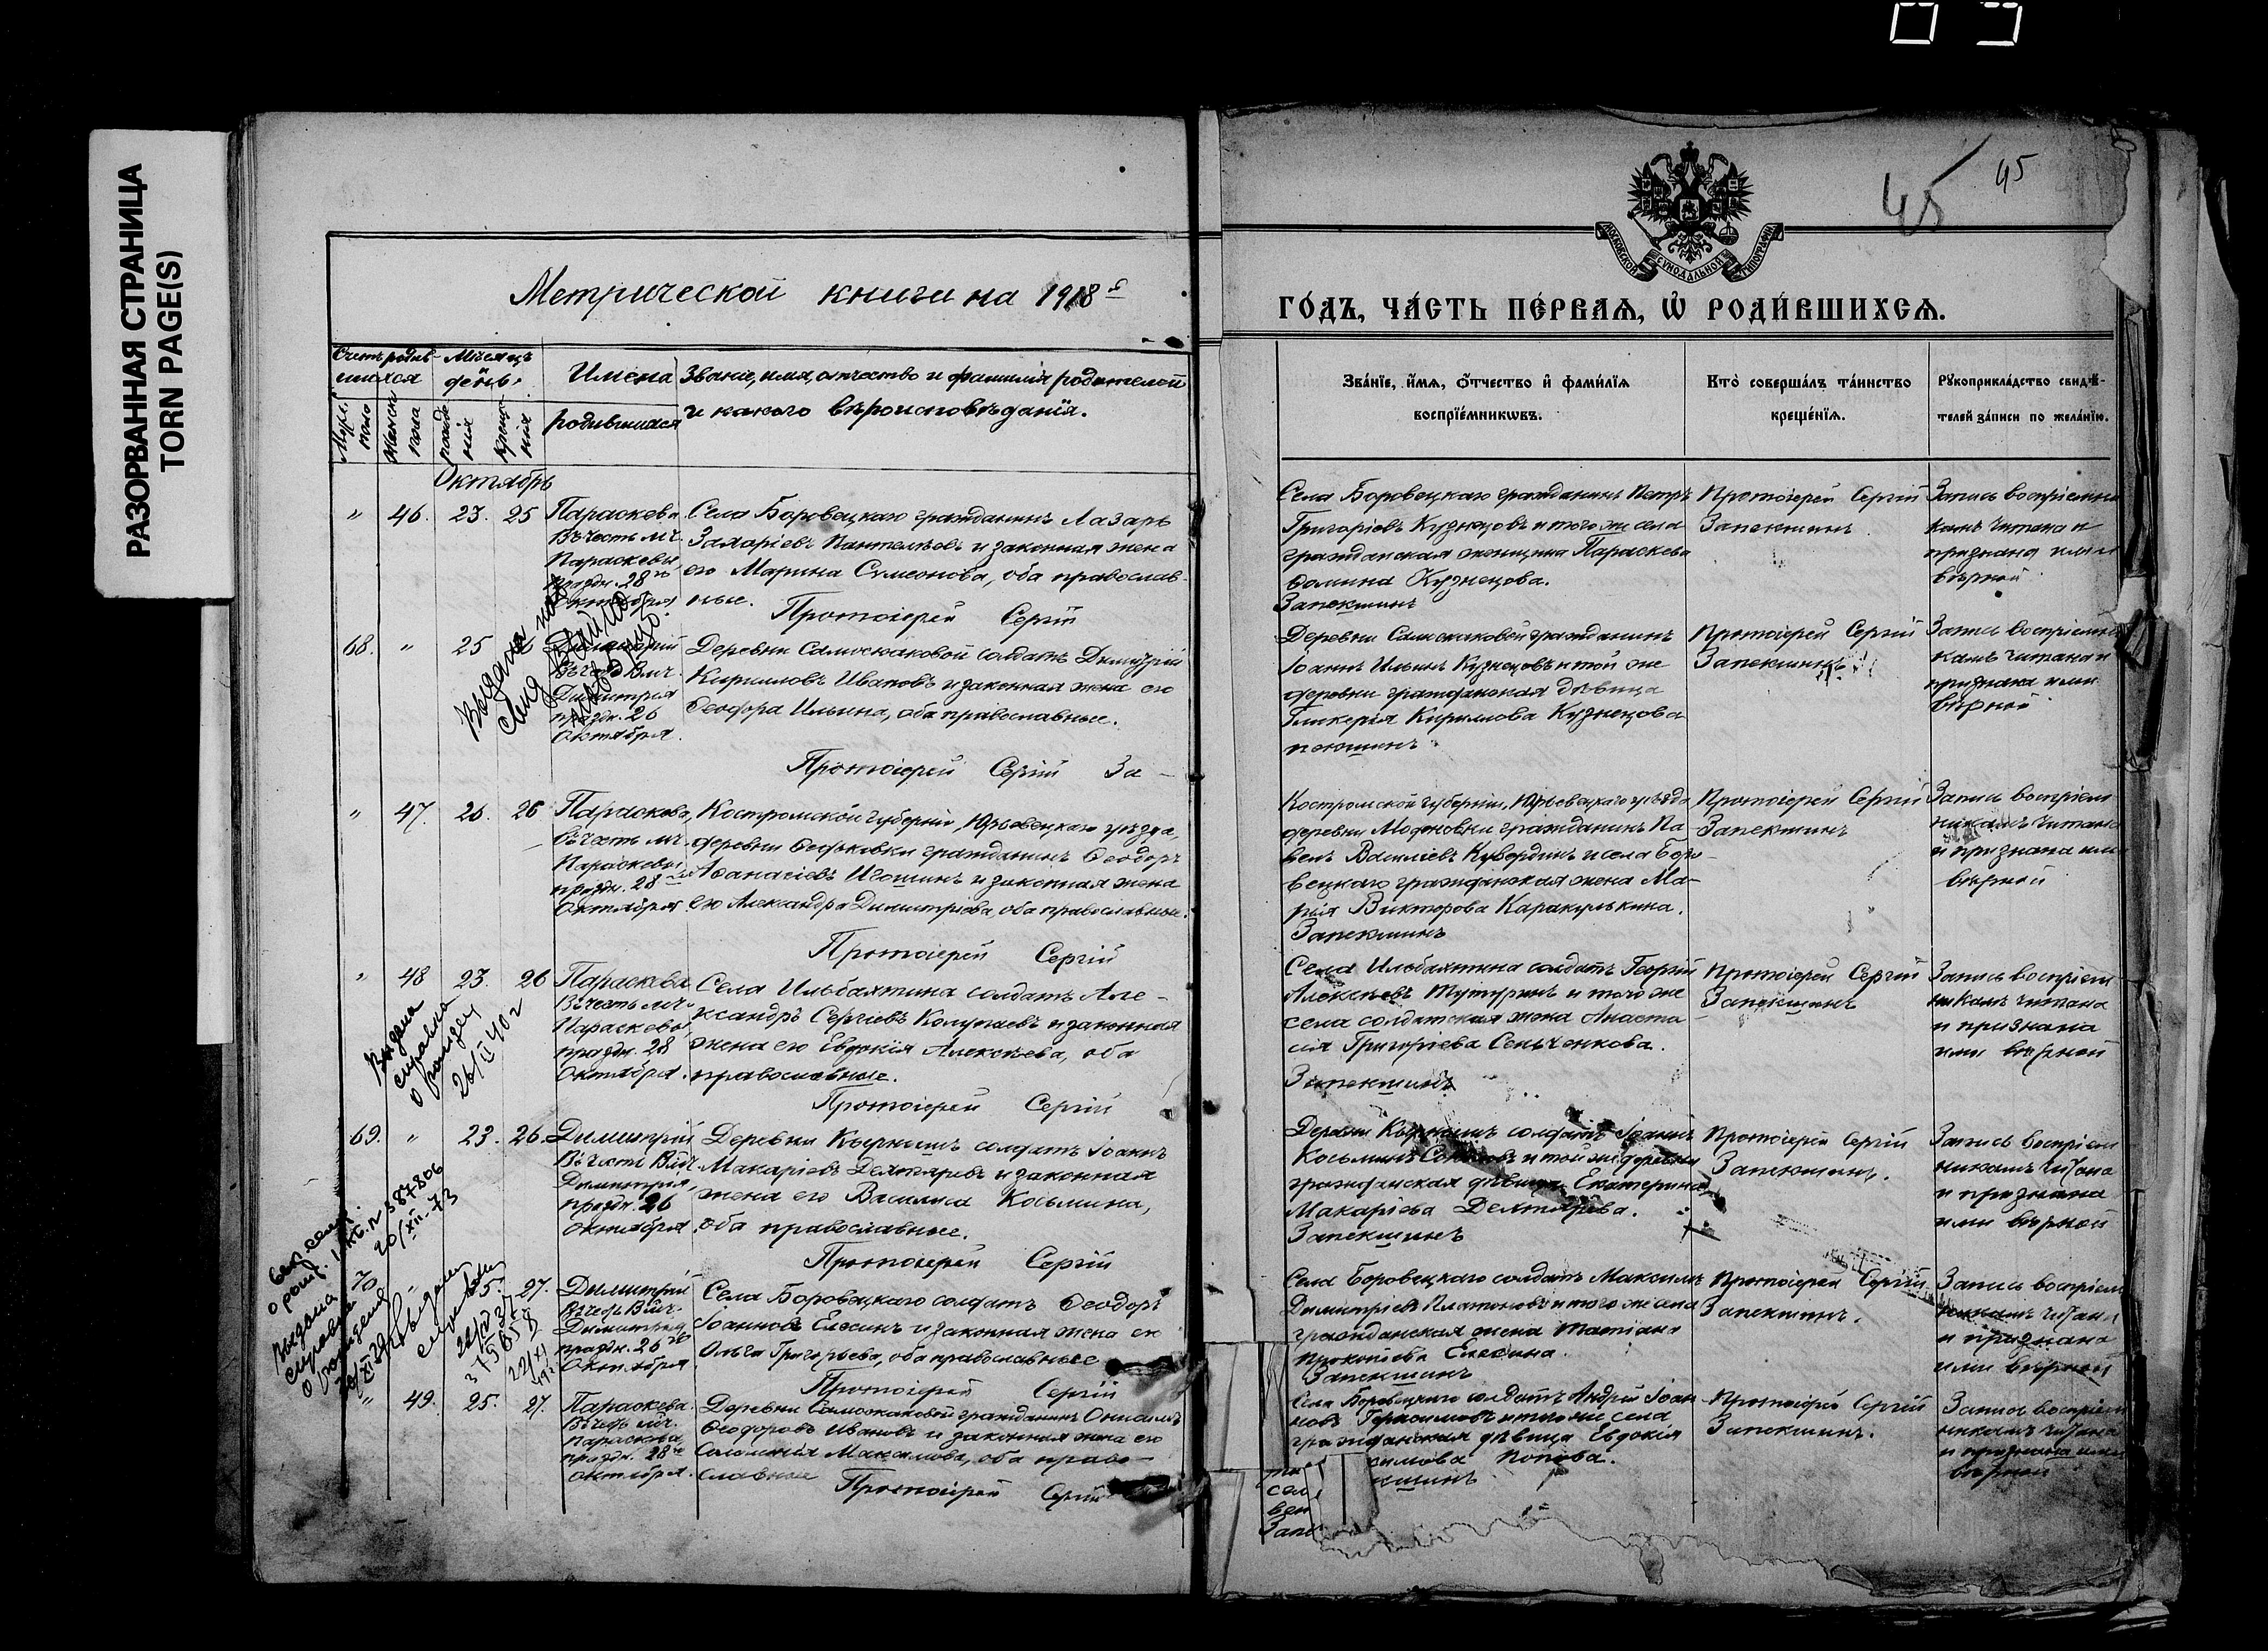 РАЗОРВАННАЯ СТРАНИЦА
TORN PAGE(S)
45
45
МОСКОВСКОЙ СѴНОДАЛЬНОЙ ТИПОГРАФІИ
Метрической книги на 1918 й
ГО́ДЪ, ЧА́СТЬ ПЕ́РВАѦ, Ѡ҆ РОДИ́ВШИХСѦ.
Счетъ родив-
шихся
Мѣсяцъ
день
Имена
родившихся
Званіе, имя, отчество и фамилія родителей
и какого вѣроисповѣданія.
Зва́нїе, и҆́мѧ, ѻ҆́тчество и҆ фами́лїѧ
воспрїе́мникѡвъ.
Кто̀ соверша́лъ та́инство
креще́нїѧ.
Рꙋкоприкла́дство свидѣ́-
телей за́писи по жела́нїю.
Октябрь
" 46. 23. 25 Параскева
Въ честь мч.
Параскевы,
праздн. 28го
Октября
Села Боровецкаго гражданинъ Лазарь
Захаріевъ Пантелѣевъ и законная жена
его Марина Сумеонова, оба православ-
ные. Протоіерей Сергій
Села Боровецкаго гражданинъ Петръ
Григоріевъ Кузнецовъ и того же села
гражданская женщина Параскева
Ѳомина Кузнецова.
Запекшинъ
Протоіерей Сергій
Запекшинъ
Запись воспріемни
камъ читана и
признана ими
вѣрной
68. " 25
Въ честь Вмч.
Димитрія
праздн. 26
Октября.
Деревни солдатъ Димитрій
Кирилловъ Ивановъ и законная жена его
Ѳеодора Ильина, оба православные.
Протоіерей Сергій За-
Деревни гражданинъ
Іоаннъ Ильинъ Кузнецовъ и той же
деревни гражданская дѣвица
Гликерія Кириллова Кузнецова
пекшинъ
Протоіерей Сергій
Запекшинъ
Запись воспріемни
камъ читана и
признана ими
вѣрной
Выдана
" 47. 26. 26 Параскева,
въ честь мч.
Параскевы
праздн. 28
Октября
Костромской губерніи, Юрьевецкаго уѣзда,
деревни гражданинъ Ѳеодоръ
Аѳанасіевъ Игошинъ и законная жена
его Александра Димитріева, оба православные.
Протоіерей Сергій
Костромской губерніи, Юрьевецкаго уѣзда
деревни гражданинъ Па
велъ Василіевъ и села Боро-
вецкаго гражданская жена Ма-
рія Викторова Каракулькина.
Запекшинъ
Протоіерей Сергій
Запекшинъ
Запись воспріем
никамъ читана
и признана ими
вѣрной
" 48 23. 26 Параскева
Въ честь мч.
Параскевы
праздн. 28
Октября.
Села Ильбахтина солдатъ Але-
ксандръ Сергіевъ Колупаевъ и законная
жена его Евдокія Алексѣева, оба
православные.
Протоіерей Сергій
Села Ильбахтина солдатъ Георгій
Алексѣевъ Тутуринъ и того же
села солдатская жена Анаста
сія Григоріева Сельченкова.
Запекшинъ
Протоіерей Сергій
Запекшинъ
Запись воспріем
никамъ читана
и признана
ими вѣрной
Выдана
справка
о рожден
26/II 40 г
69. " 23. 26. Димитрій
Въ честь Вмч.
Димитрія,
праздн. 26
Октября
Деревни Кырнышъ солдатъ Іоаннъ
Макаріевъ Дехтяревъ и законная
жена его Василиса Косьмина,
оба православные.
Протоіерей Сергій
Деревни Кырнышъ солдатъ Іоаннъ
Косьминъ и той же деревни
гражданская дѣвица Екатерина
Макаріева Дехтярева.
Запекшинъ
Протоіерей Сергій
Запекшинъ.
Запись воспріем
никамъ читана
и признана
ими вѣрной
о рожд. 387806
20/XII-73
70 " 25. 27. Димитрій
Въ честь Вмч.
Димитрія
праздн. 26го
Октября
Села Боровецкаго солдатъ Ѳеодоръ
Іоанновъ Елесинъ и законная жена его
Ольга Григорьева, оба православные
Протоіерей Сергій
Села Боровецкаго солдатъ Максимъ
Димитріевъ Платоновъ и того же села
гражданская жена Татіана
Прокопіева Елесина.
Запекшинъ
Протоіерей Сергій
Запекшинъ.
Запись воспріем
никамъ читана
и признана
ими вѣрной
Выдана
справка
о рождении
" 49. 25. 27. Параскева.
Въ честь мч.
Параскевы
праздн. 28го
октября.
Деревни гражданинъ
Ѳеодоровъ Ивановъ и законная жена его
Соломонія Максимова, оба право-
славные Протоіерей Сергій
Села Боровецкаго солдатъ Андрей Іоан
новъ Герасимовъ и того же села
гражданская дѣвица Евдокія
симова Попова.
кшинъ
Протоіерей Сергій
Запекшинъ.
Запись воспріем
никамъ читана
и признана ими
вѣрной
сел
вец
Запе